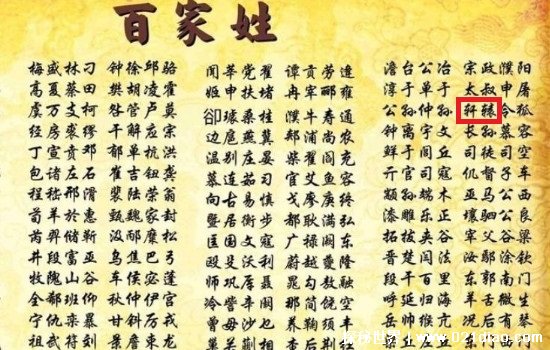 百家姓
梅盛林刁 钟徐邱骆 闻莘党翟 谭贡劳逄 澹台公冶宗政濮阳
高夏蔡田 樊胡凌霍 姬申扶堵 冉宰郦雍 淳于单于太叔申屠
虞万支柯 昝管卢莫 郤璩桑桂 牛寿通 公孙仲孙轩辕令狐
经房裘缪 干解应宗 边扈燕冀 郏浦尚农 钟离宇文长孙慕容
丁宣贲邓 郁单杭洪 温别庄晏 柴瞿阎充 鲜于闾丘司徒司空
包诸左石 崔吉钮龚 慕连茹习 宦艾鱼容 亓官司寇仉督子车
程嵇邢滑 裴陆荣翁 向古易慎 戈廖庾终 颛孙端木巫马公西
荀羊於惠 甄曲家封 暨居衡步 都耿满弘 漆雕乐正壤驷公良
芮羿储靳 汲邴糜松 匡国文寇 广禄阙东 拓跋夹谷宰父谷梁
段富巫 乌焦巴弓 殳沃利蔚 越夔隆 晋楚闫法汝鄢涂钦
牧隗山谷 车侯宓蓬 师巩厍聂 晁勾敖融 段干百里东郭南门
全郗班仰 秋仲伊宫 冷訾辛阚 那简饶空 呼延归海羊舌微生
宁仇栾暴 甘钭厉戎 曾毋沙 岳帅缑亢况后有琴